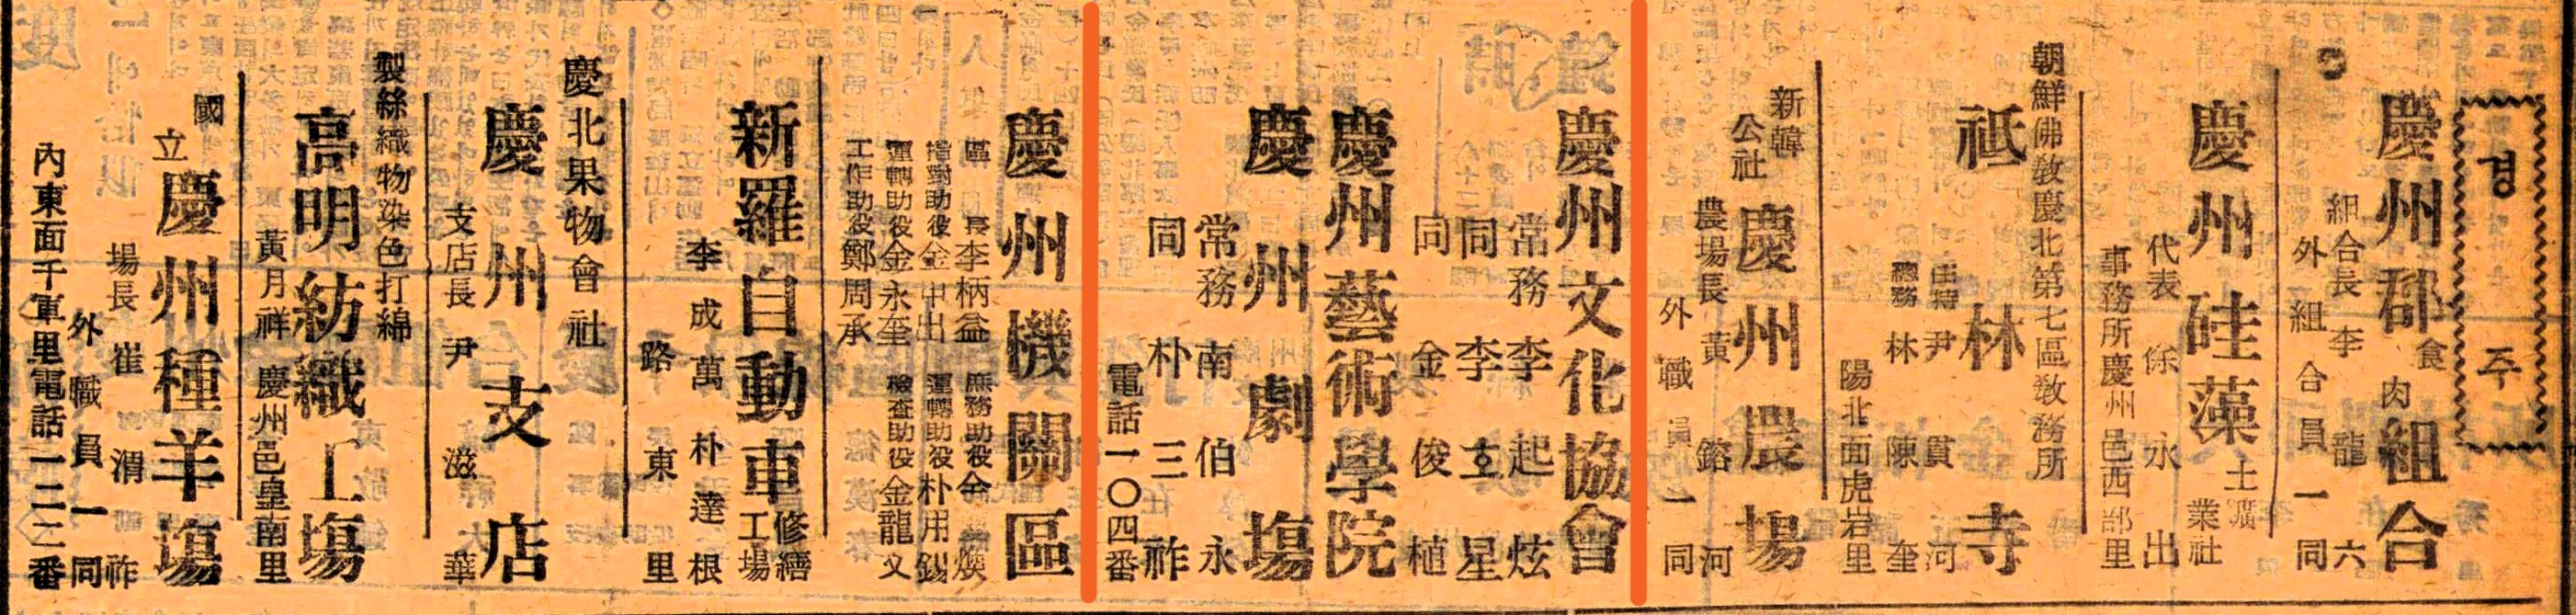 경주
慶州郡食肉組合
組合長 李龍六
外組合員一同
慶州硅藻土礦業社
代表 徐永出
事務所慶州邑西部里
朝鮮佛敎慶北第七區敎務所
祗林寺
住持 尹貫河
總務 林陳奎
陽北面虎岩里
新韓公社
慶州農場
農場長 黃鎔河
外職員一同
慶州文化協會
常務 李起炫
同 李호星
同 金俊植
慶州藝術學院
慶州劇場
常務 南伯永
同 朴三祚
電話一〇四番
慶州機關區
區長 李柄益
庶務助役 金煥
指導助役 金中出
運轉助役 朴用錫
運轉助役 金永奎
檢査助役 金龍文
工作助役 鄭周承
新羅自動車修繕工場
李成萬
朴達根
路東里
慶北果物會社
慶州支店
支店長 尹滋華
製絲織物染色打綿
高明紡織工場
黃月祥
慶州邑皇南里
國立慶州種羊場
場長 崔渭祚
外職員一同
內東面千軍里電話一二二番